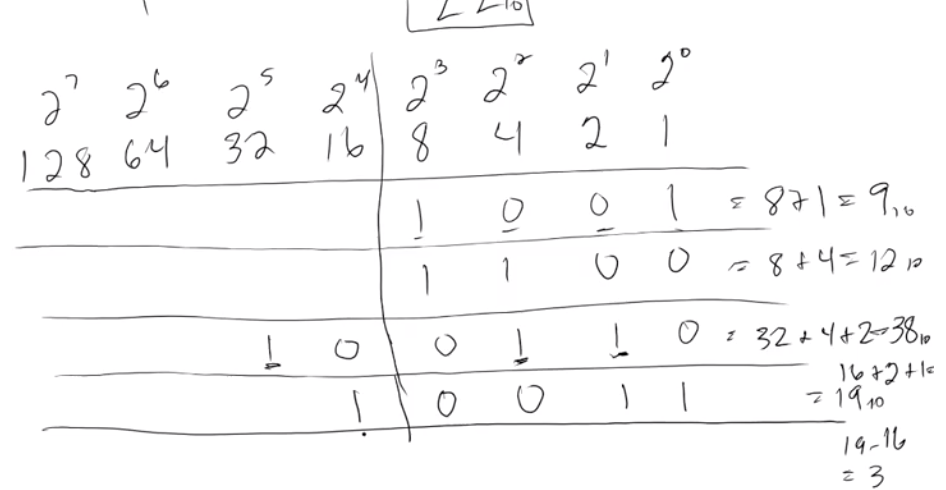 2⁷ 2⁶ 2⁵ 2⁴ 2³ 2² 2¹ 2⁰
128 64 32 16 8 4 2 1
1 0 0 1 = 8+1 = 9₁₀
1 1 0 0 = 8+4 = 12₁₀
1 0 0 1 1 0 = 32+4+2=38₁₀
16+2+1=
1 0 0 1 1 = 19₁₀
19-16
= 3